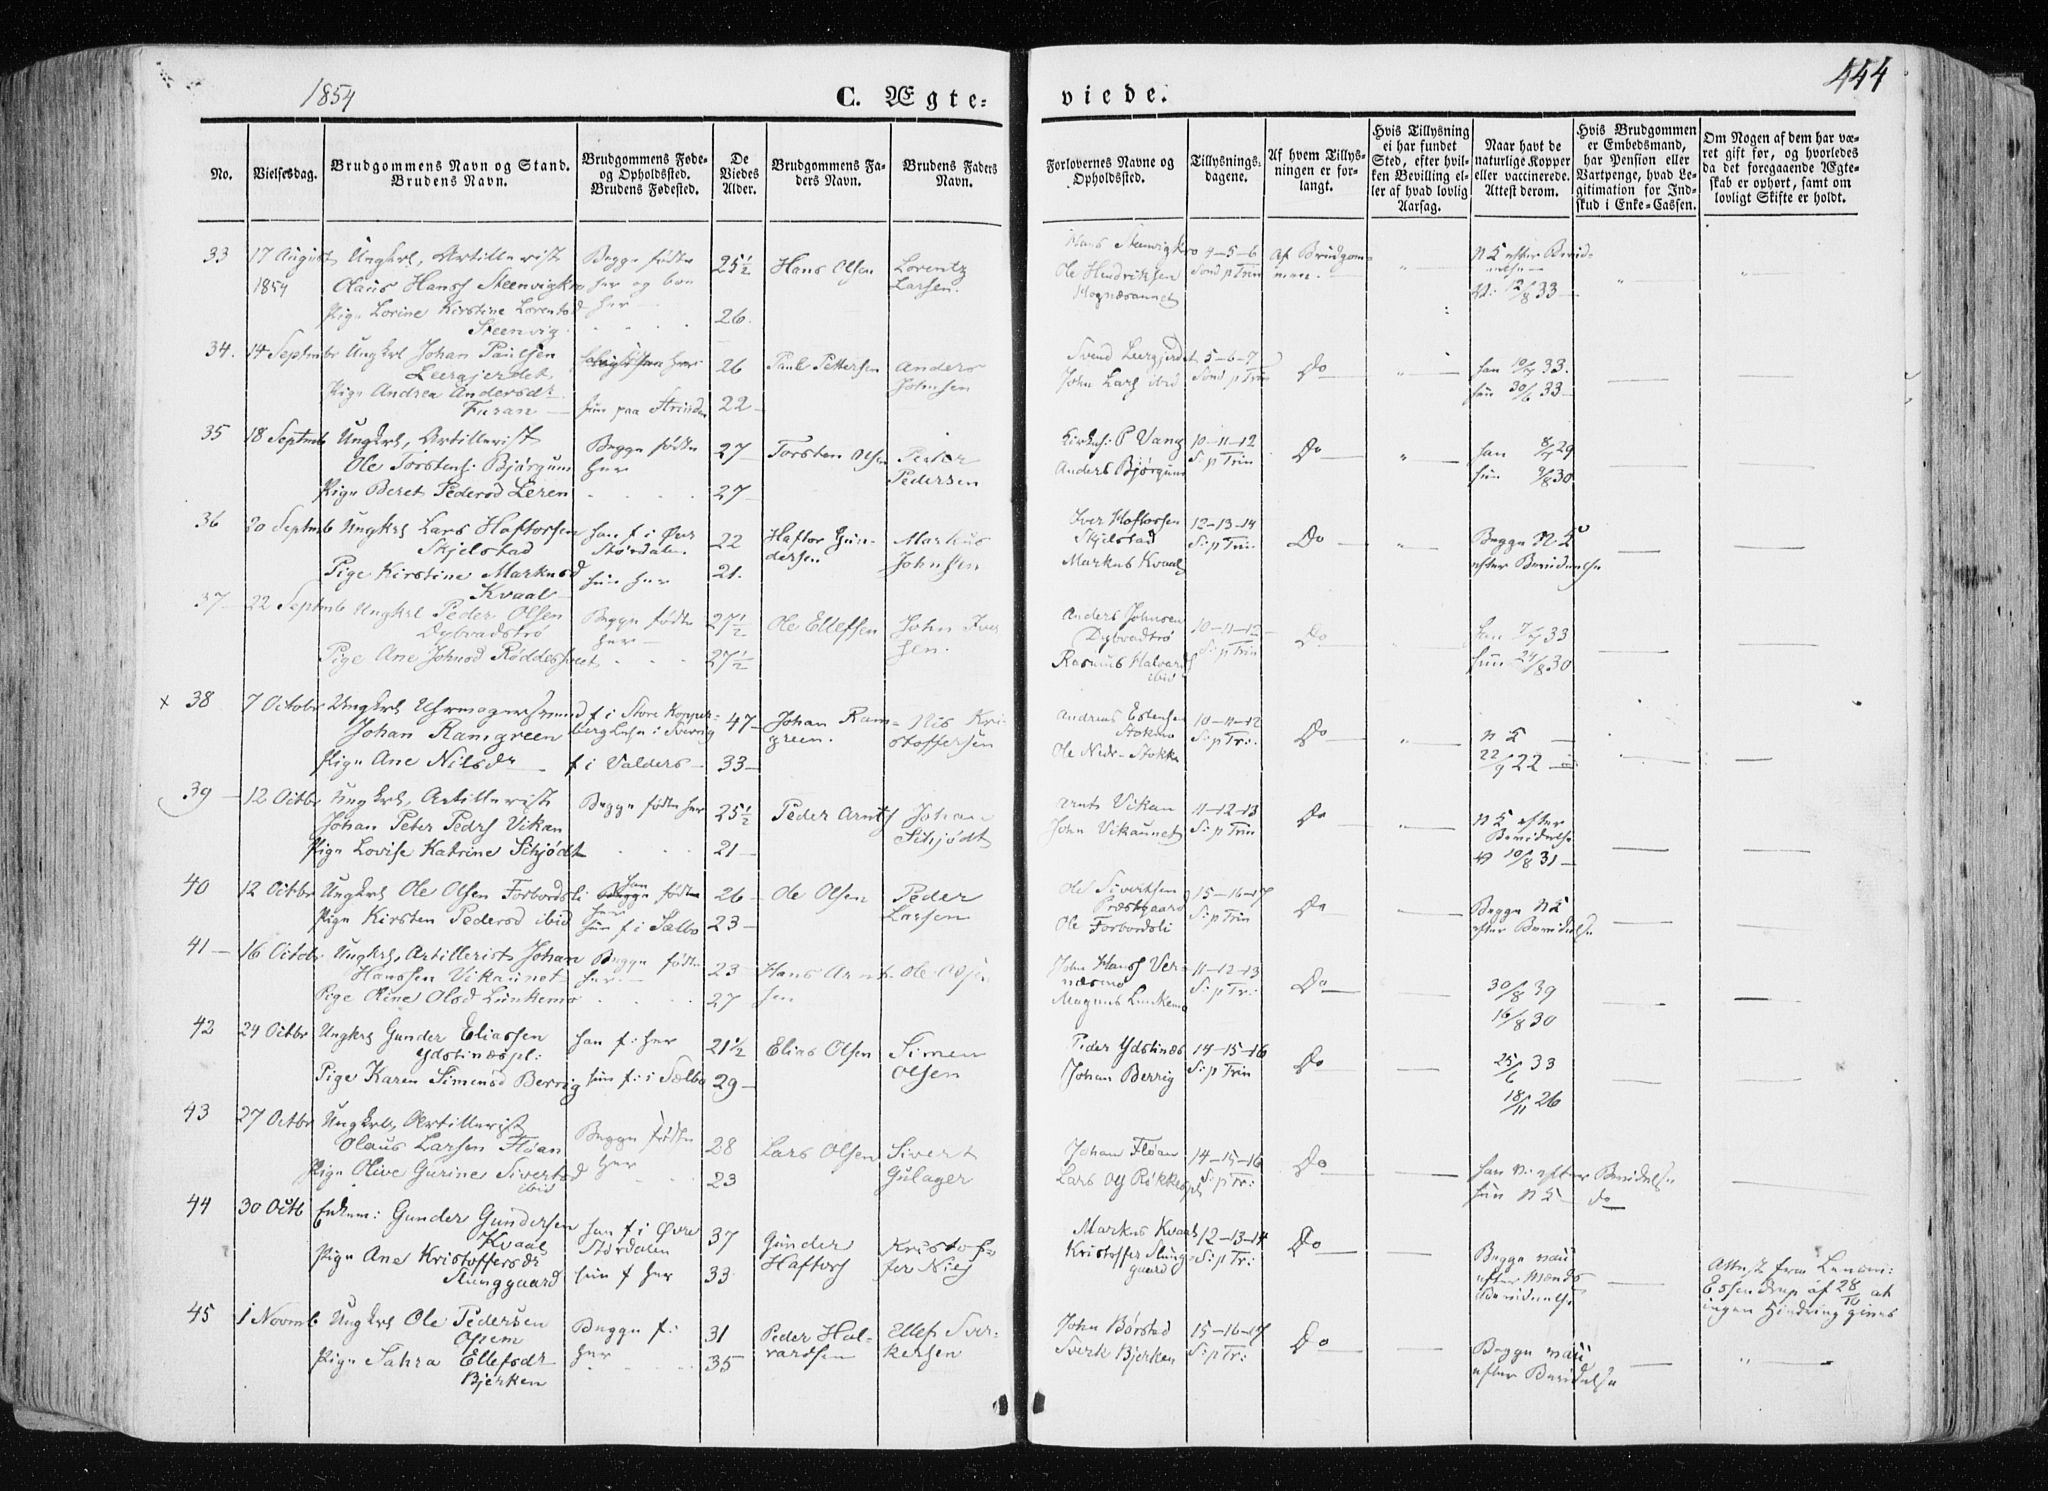 1854
C. Ægte=
viede.
444
No.
Vielsesdag.
Brudgommens Navn og Stand.
Brudens Navn.
Brudgommens Føde-
og Opholdssted.
Brudens Fødested.
De
Viedes
Alder.
Brudgommens Fa-
ders Navn.
Brudens Faders
Navn.
Forlovernes Navne og
Opholdssted.
Tillysnings-
dagene.
Af hvem Tillys-
ningen er for-
langt.
Hvis Tillysning
ei har fundet
Sted, efter hvil-
ken Bevilling el-
ler af hvad lovlig
Aarsag.
Naar havt de
naturlige Kopper
eller vaccinerede.
Attest derom.
Hvis Brudgommen
er Embedsmand,
har Pension eller
Vartpenge, hvad Le-
gitimation for Ind-
skud i Enke-Cassen.
Om Nogen af dem har væ-
ret gift før, og hvorledes
da det foregaaende Ægte-
skab er ophørt, samt om
lovligt Skifte er holdt.
33 17 August 1854
Ungkrl, Artillerist
Olaus Hanss Steenvigkro
Pige Lorine Kirstine Lorentsd
Steenvig
Begge fødte
her og boe
her
25½
26
Hans Olsen
Lorentz
Larsen.
Hans Steenvigkro
Ole Hendriksen
4-5-6
Sønd p Trin
Af Brudgom-
men.
12/8 33
34. 14 Septmbr
Ungkrl Johan Paulsen
Leergjerdet
Pige Andrea Andersdr
Furan
hun paa Strinden
26
22
Paul Pettersen
Anders
Johnsen
Svend Leergjerdet
John Lars ibid
5-6-7
Sønd p Trin
Do
han 33.
hun 30/6 33
35 18 Septmb
Ungkrl, Artillerist
Ole Torstens: Bjørgum
Pige Beret Pedersd Leren
Begge fødte
her
27
27
Torsten Olsen
Peter
Pedersen
Kirkes: P Vang
Anders Bjørgum
10-11-12
S: p Trin
Do
han 29
hun 9/8 30
36 20 Septmb
Ungkrl Lars Haftorsen
Skjelstad
Pige Kirstine Markusd
Kvaal
han f i Øvr
Størdalen
hun her
22
21.
Haftor Gun-
dersen
Markus
Johnsen
Iver Haftorsen
Skjelstad
Markus Kvaal
12-13-14
S: p Trin
Do
Begge N. 5
efter Beridelse
37 22 Septmb
Ungkrl Peder Olsen
Dybvadstrø
Pige Ane Johnsd Røddeshvet
Begge fødte
her
27½
27½
Ole Ellefsen
John Iver
sen.
Anders Johnsen
Dybvadtrø
Rasmus Halvards
ibid
10-11-12
S: p Trin
Do
han 33
hun 24/8 30
x 38 7 Octobr
Ungkrl Uhrmagersvend
Johan Ramgreen
Pige Ane Nilsdr
f i Store Kopper-
berg Lehn i Sverrig
f i Valders
47
33
Johan Ram-
green.
Nils Kri-
stoffersen
Andreas Estensen
Stokmo
Ole Nedr-Stokke
10-11-12
S: p Tr:
Do
N 5
22/9 22
39 12 Octbr
Ungkrl, Artillerist
Johan Peter Peds Vikan
Pige Lovise Katrine Schjødt
Begge fødte her
25½
21
Peder Arnts
Johan
Schjødt
Arnt Vikan
John Vikaunet
11-12-13
S: p Trin
Do
N 5 efter
Beridelse
10/8 31
40 12 Octbr
Ungkrl Ole Olsen Forbordsli
Pige Kirsten Pedersd ibid
han
Begge fødte
her
hun f i Sælbo
26
23
Ole Olsen
Peder
Larsen
Ole Sivertsen
Præstgaard
Ole Forbordsli
15-16-17
S: p Trin
Do
Begge N 5
efter Beridelse
41 16 Octobr
Ungkrl, Artillerist Johan
Hanssen Vikaunet
Pige Oline Olsd Lunkemo
Begge fødte
her.
23
27
Hans Arnt-
sen
Ole Olsen
John Hanss Ver-
næsmo
Magnus Lunkemo
11-12-13
S: p Tr:
Do
30/8 39
16/8 30
42 24 Octbr
Ungkrl Gunder Eliassen
Ydstinæspl:
Pige Karen Simonsd Berrig
han f: her
hun f: i Sælbo
21½
29
Elias Olsen
Simen
Olsen
Peder Ydstinæs
Johan Berrig
14-15-16
S: p Trin
Do
25/6 33
18/11 26
43 27 Octbr
Ungkrl, Artillerist
Olaus Larsen Fløan
Pige Olive Gurine Sivertsd
ibid
Begge fødte
her
28
23
Lars Olsen
Sivert
Gulager
Johan Fløan
14-15-16
S: p Tr:
Do
han N: efter Beridelse
hun N 5 do
44 30 Octb
Enkem: Gunder Gundersen
Kvaal
Pige Ane Kristoffersdr
Stunggaard
han f i Øvre
Størdalen
hun f her
37
33
Gunder
Haftors
Kristof-
fer Niels
Markus Kvaal
Kristoffer Stung-
gaard
12-13-14
S: p Tr:
Do
Begge
efter
Beridelse
Attest fra
Essendrop af 28/10 at
ingen Hindring gives
45 1 Novmb
Ungkrl Ole Pedersen
Opem
Pige Sahra Ellefsdr
Bjerken
Begge f:
her
31
35
Peder Hal-
vardsen
Ellef Sver-
kersen
John Børstad
Sverk Bjerken
15-16-17
S: p Tr:
Do
Begge
efter Beridelse